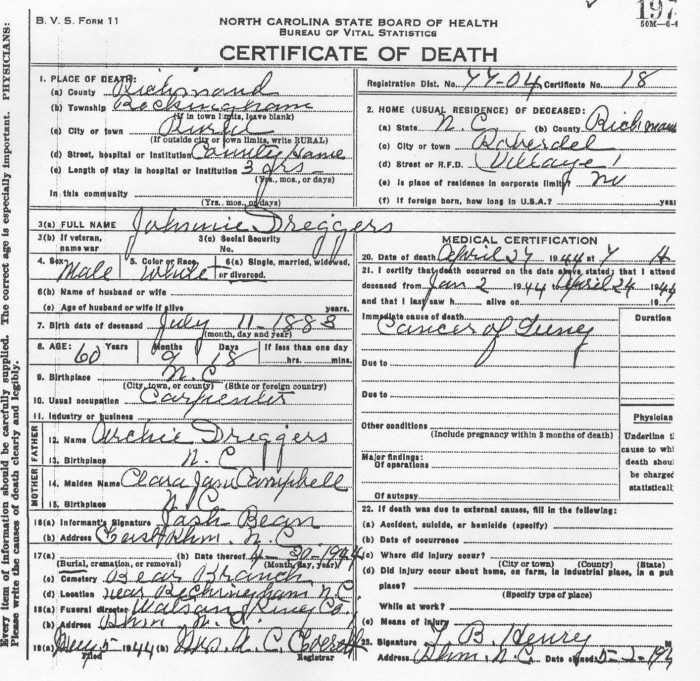 B. V. S. FORM 11
NORTH CAROLINA STATE BOARD OF HEALTH
BUREAU OF VITAL STATISTICS
CERTIFICATE OF DEATH
197
50M—6-4
PHYSICIANS:
Every item of information should be carefully supplied. The correct age is especially important.
Please write the causes of death clearly and legibly.
1. PLACE OF DEATH:
(a) County Richmond
(b) Township Rockingham
(If in town limits, leave blank)
(c) City or town Rural
(If outside city or town limits, write RURAL)
(d) Street, hospital or Institution County Home
(e) Length of stay in hospital or Institution 3 yrs.
(Yrs., mos., or days)
In this community
(Yrs., mos., or days)
Registration Dist. No. 77-04 Certificate No. 18
2. HOME (USUAL RESIDENCE) OF DECEASED:
(a) State N C (b) County Richmond
(c) City or town Roberdel
(d) Street or R.F.D. Village
(e) Is place of residence in corporate limits? no
(f) If foreign born, how long in U.S.A.? years
3(a) FULL NAME Johnnie Dreggers
3(b) If veteran, name war 3(c) Social Security No.
4. Sex Male 5. Color or Race White 6(a) Single, married, widowed, or divorced.
6(b) Name of husband or wife
(c) Age of husband or wife if alive years.
7. Birth date of deceased July 11-1883
(month, day and year)
8. AGE: 60 Years 9 Months 18 Days If less than one day
hrs. mins.
9. Birthplace N. C
(City, town, or county) (State or foreign country)
10. Usual occupation Carpenter
11. Industry or business
FATHER
12. Name Archie Dreggers
13. Birthplace N. C
MOTHER
14. Maiden Name Clara Jane Campbell
15. Birthplace N C
16(a) Informant's Signature Bean
(b) Address N. C
17(a) (b) Date thereof 4-30-1944
(Burial, cremation, or removal) (Month, day, year)
(c) Cemetery Bear Branch
(d) Location near Rockingham N.C.
18(a) Funeral director Watson King Co.
(b) Address Rhm N. C.
19(a) May 5 1944 (b) Mrs. N. C. Everett
Filed Registrar
MEDICAL CERTIFICATION
20. Date of death April 27 1944 at 7
21. I certify that death occurred on the date above stated; that I attended
deceased from Jan 2 1944 to April 24 1944
and that I last saw h alive on 19
Immediate cause of death Duration
Cancer of Lung
Due to
Due to
Other conditions
(Include pregnancy within 3 months of death)
Major findings:
Of operations
Of autopsy
Physician
Underline t
cause to whi
death shoul
be charged
statisticall
22. If death was due to external causes, fill in the following:
(a) Accident, suicide, or homicide (specify)
(b) Date of occurrence
(c) Where did injury occur?
(City or town) (County) (State)
(d) Did injury occur about home, on farm, in industrial place, in a pub
place?
(Specify type of place)
While at work?
(e) Means of injury
23. Signature B. Henry M
Address Rhm. N.C. Date signed 5-2-194